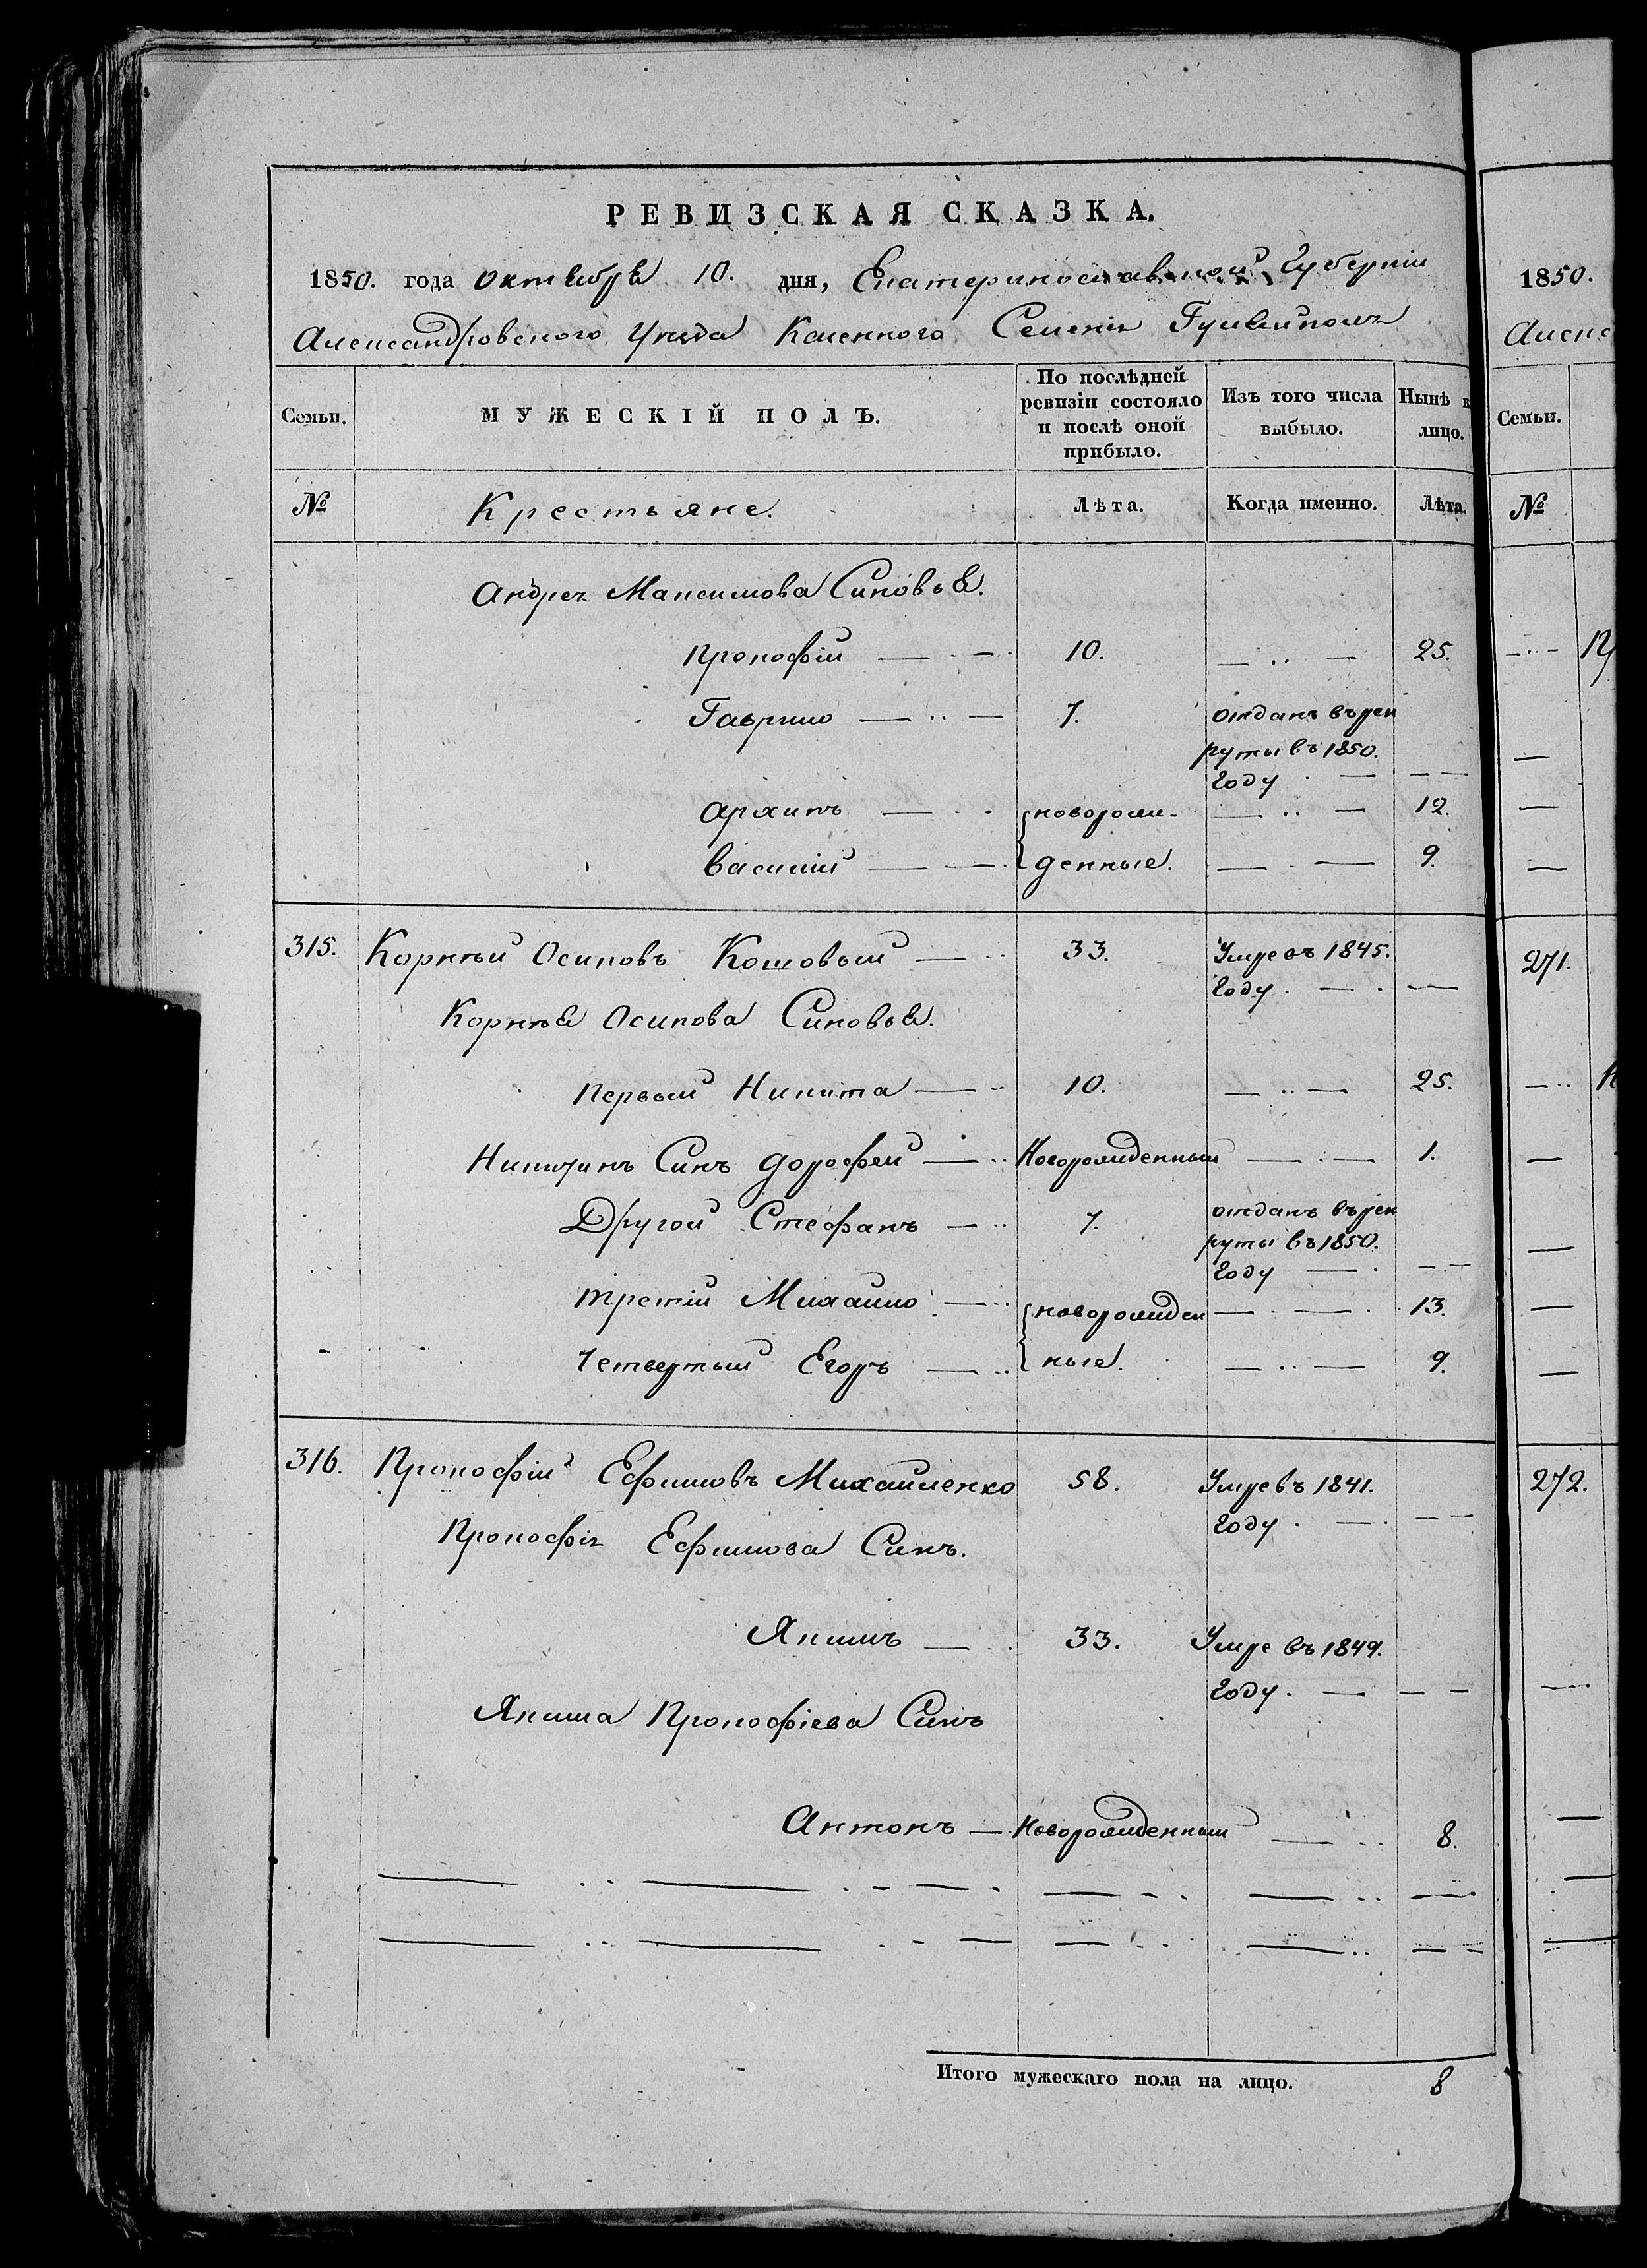 РЕВИЗСКАЯ СКАЗКА.
1850. года октября 10. дня, Екатеринославской Губернии
Александровского Уезда Казенного Селения Гуляйполя
Семьи.
МУЖЕСКІЙ ПОЛЪ.
По послѣдней ревизіи состояло и послѣ оной прибыло.
Изъ того числа выбыло.
Нынѣ в лицо.
№
Крестьяне.
Лѣта.
Когда именно.
Лѣта.
Андрея Максимова Синовья.
Прокофій — 10. — 25.
Гаврило — 7. отданъ въ рек
руты въ 1850.
году —
Архипъ — {новорож- — 12.
Василій — {денные. — 9.
315. Корнѣй Осиповъ Кошовый — 33. Умре въ 1845.
году. —
Корнѣя Осипова Синовья.
Первый Никита — 10. — 25.
Никитинъ Синъ Дорофей — Новорожденный — 1.
Другой Стефанъ — 7. отданъ въ рек
руты въ 1850.
году —
Третій Михайло — {новорожден — 13.
Четвертый Егоръ — {ные. — 9.
316. Прокофій Ефимовъ Михайленко 58. Умре въ 1841.
году. —
Прокофія Ефимова Синъ.
Якимъ — 33. Умре въ 1849.
году. —
Якима Прокофіева Синъ
Антонъ — Новорожденный — 8.
Итого мужескаго пола на лицо. 8
1850.
Алекс
Семьи.
№
271.
272.